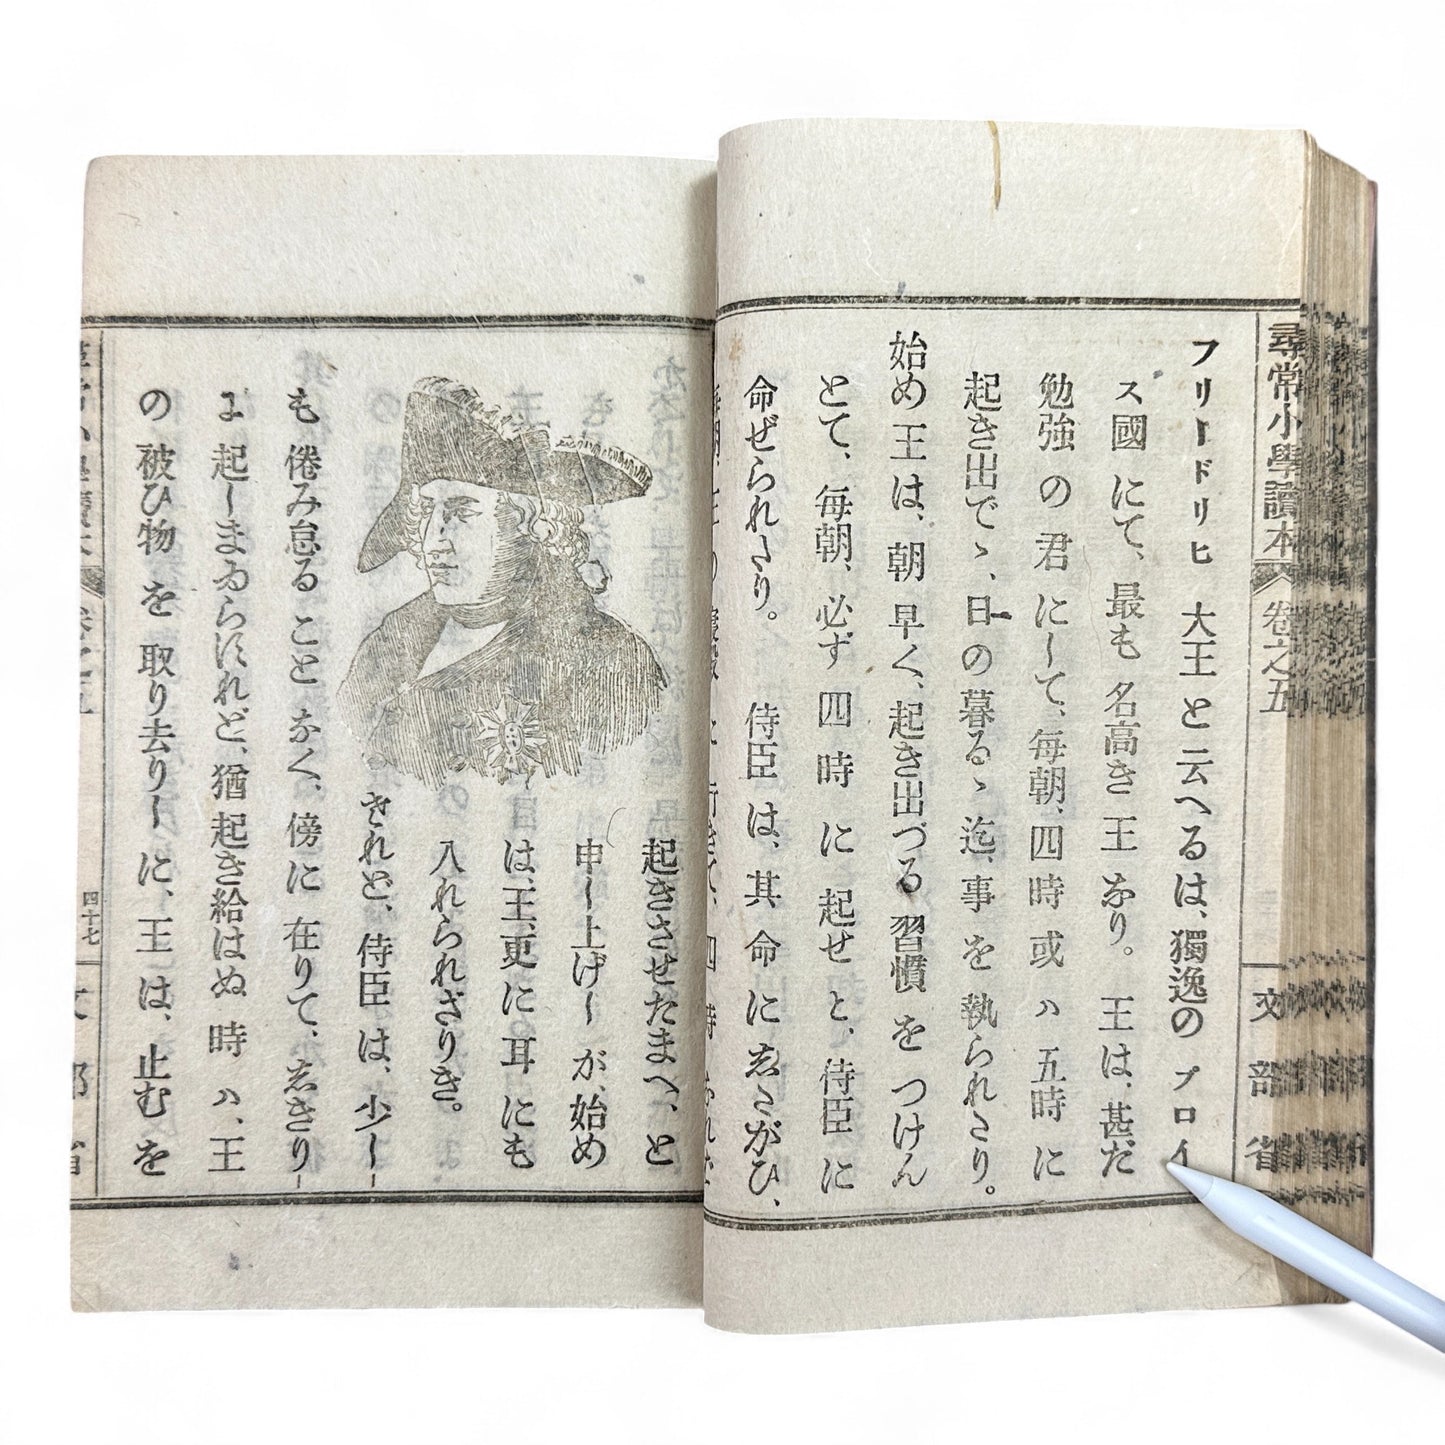 尋常小學讀本 巻之五 文部省
フリードリヒ大王と云へるは、獨逸のプロイ
ス國にて、最も名高き王なり。王は、甚だ
勉強の君にして、毎朝、四時或ハ五時に
起き出でゝ、日の暮るゝ迄、事を執られたり。
始め王は、朝早く、起き出づる習慣をつけん
とて、毎朝、必ず四時に起せと、侍臣に
命ぜられたり。侍臣は、其命にしたがひ、
毎朝、王の寝殿に行きて、四時なれば
起きさせたまへ、と
申し上げしが、始め
は、王、更に耳にも
入れられざりき。
されど、侍臣は、少し
も倦み怠ることなく、傍に在りて、しきり
に起しまゐらすれど、猶起き給はぬ時ハ、王
の被ひ物を取り去りしに、王は、止むを
四十七